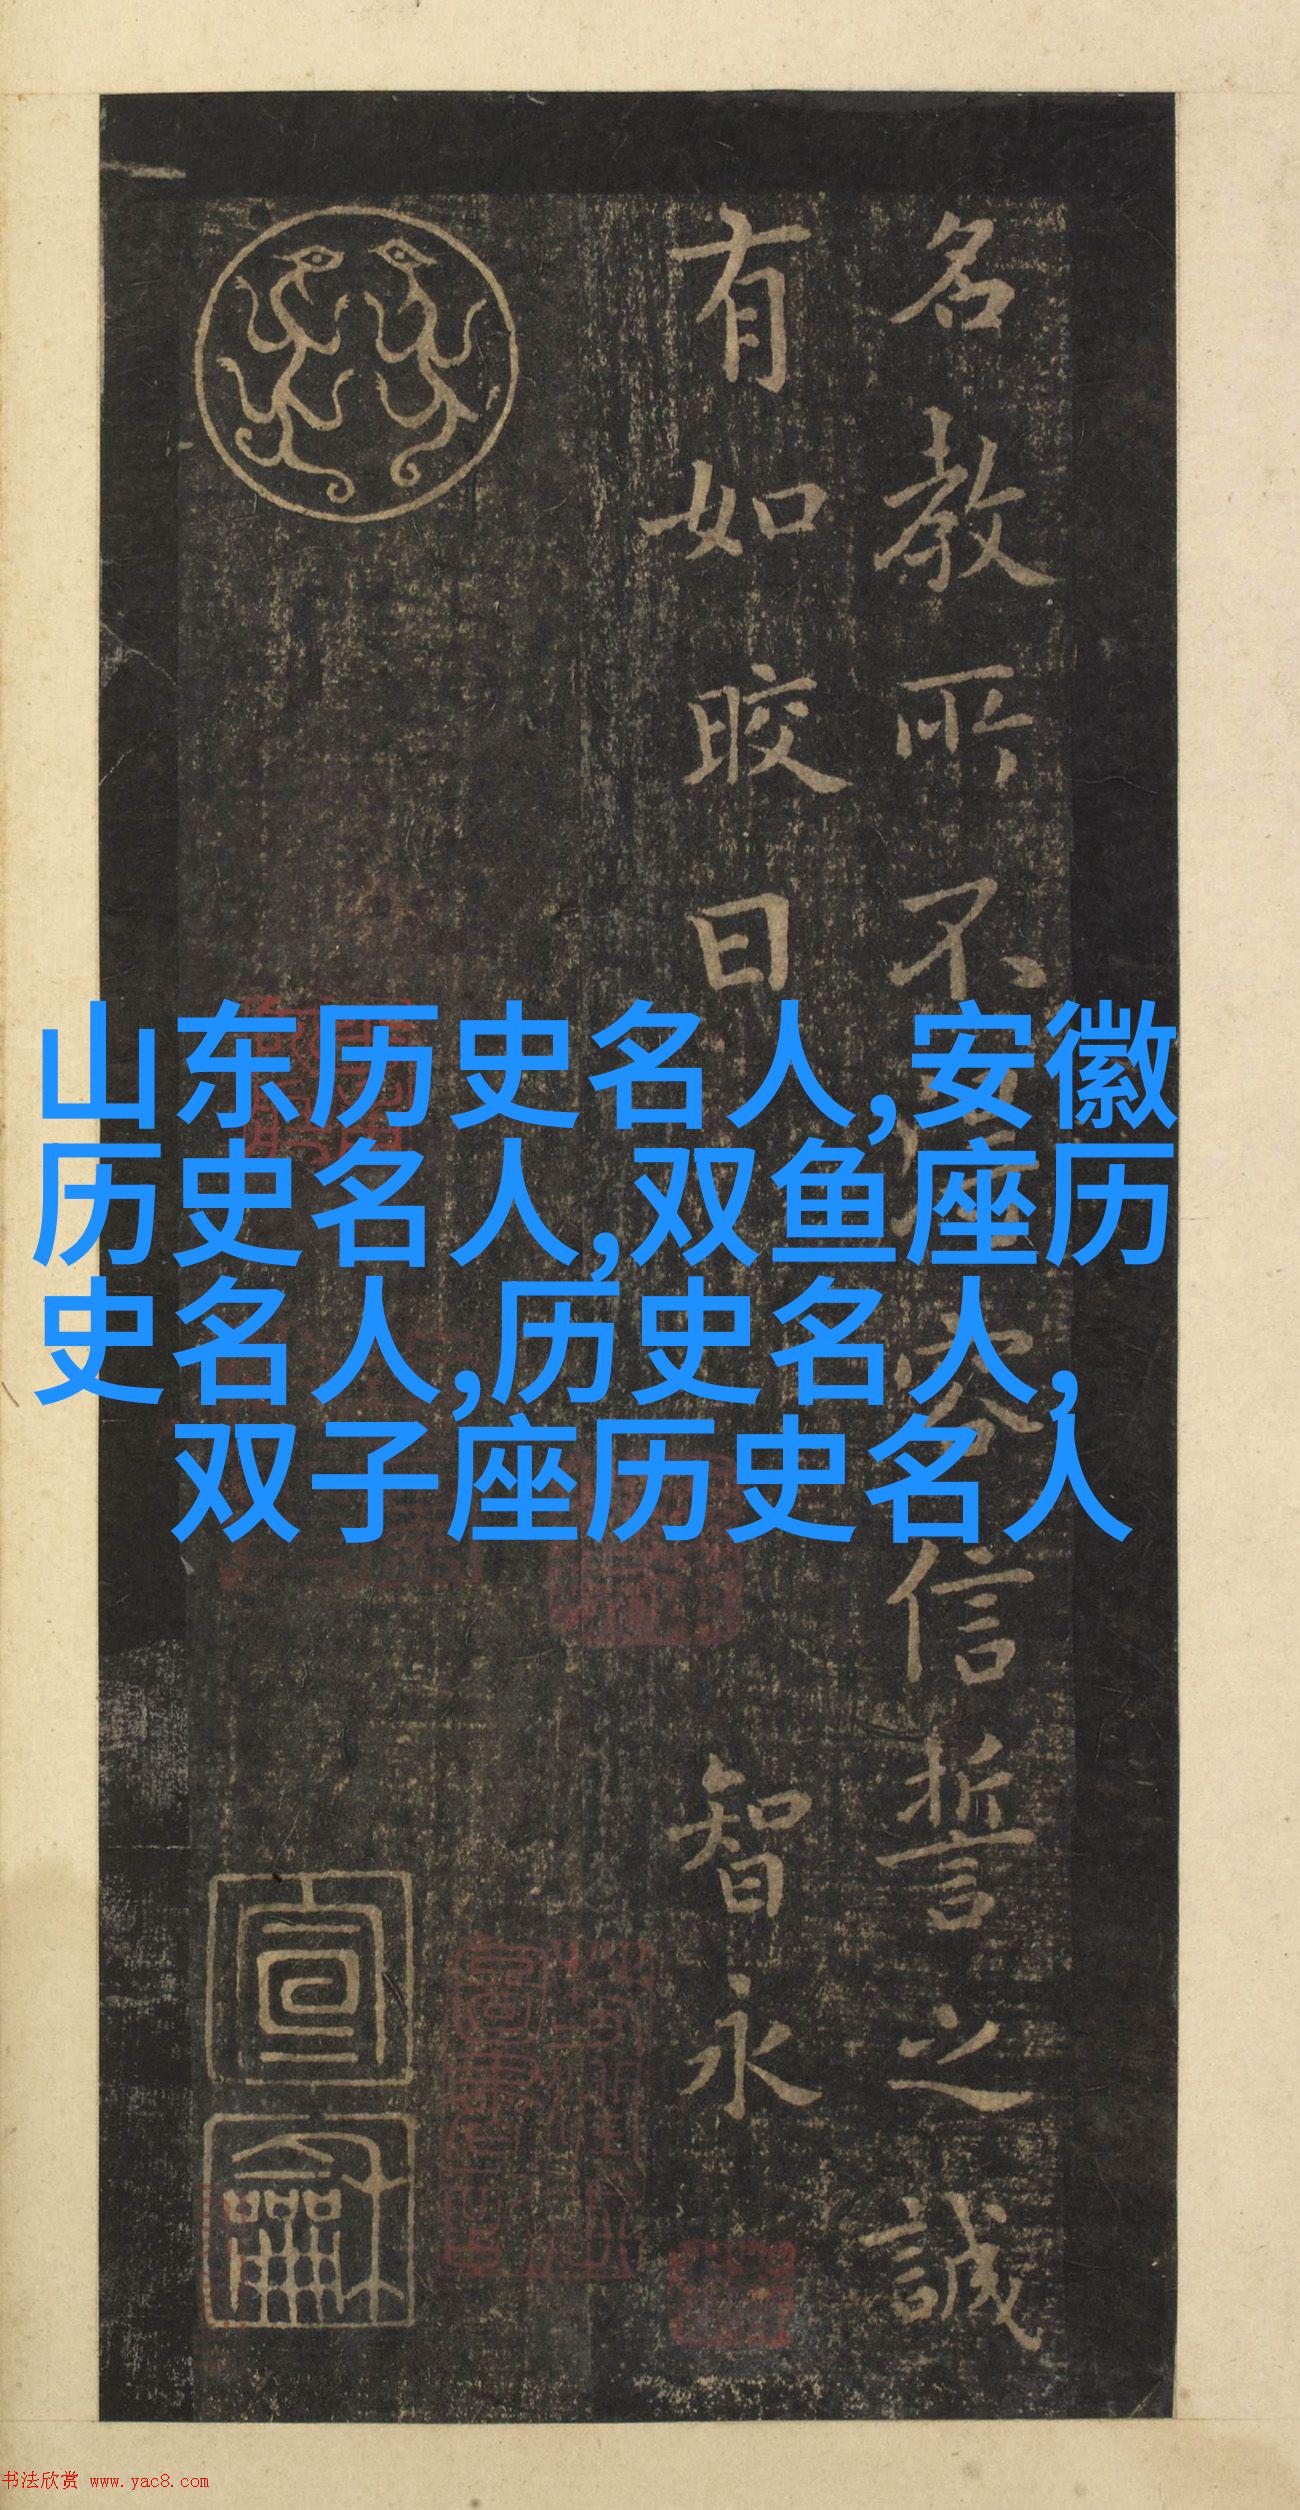 名教所不得容信誓之誠
有如晈日 智永
宣
龢
山东历史名人,安徽
历史名人,双鱼座历
史名人,历史名人,
双子座历史名人
书法欣赏 www.yac8.com